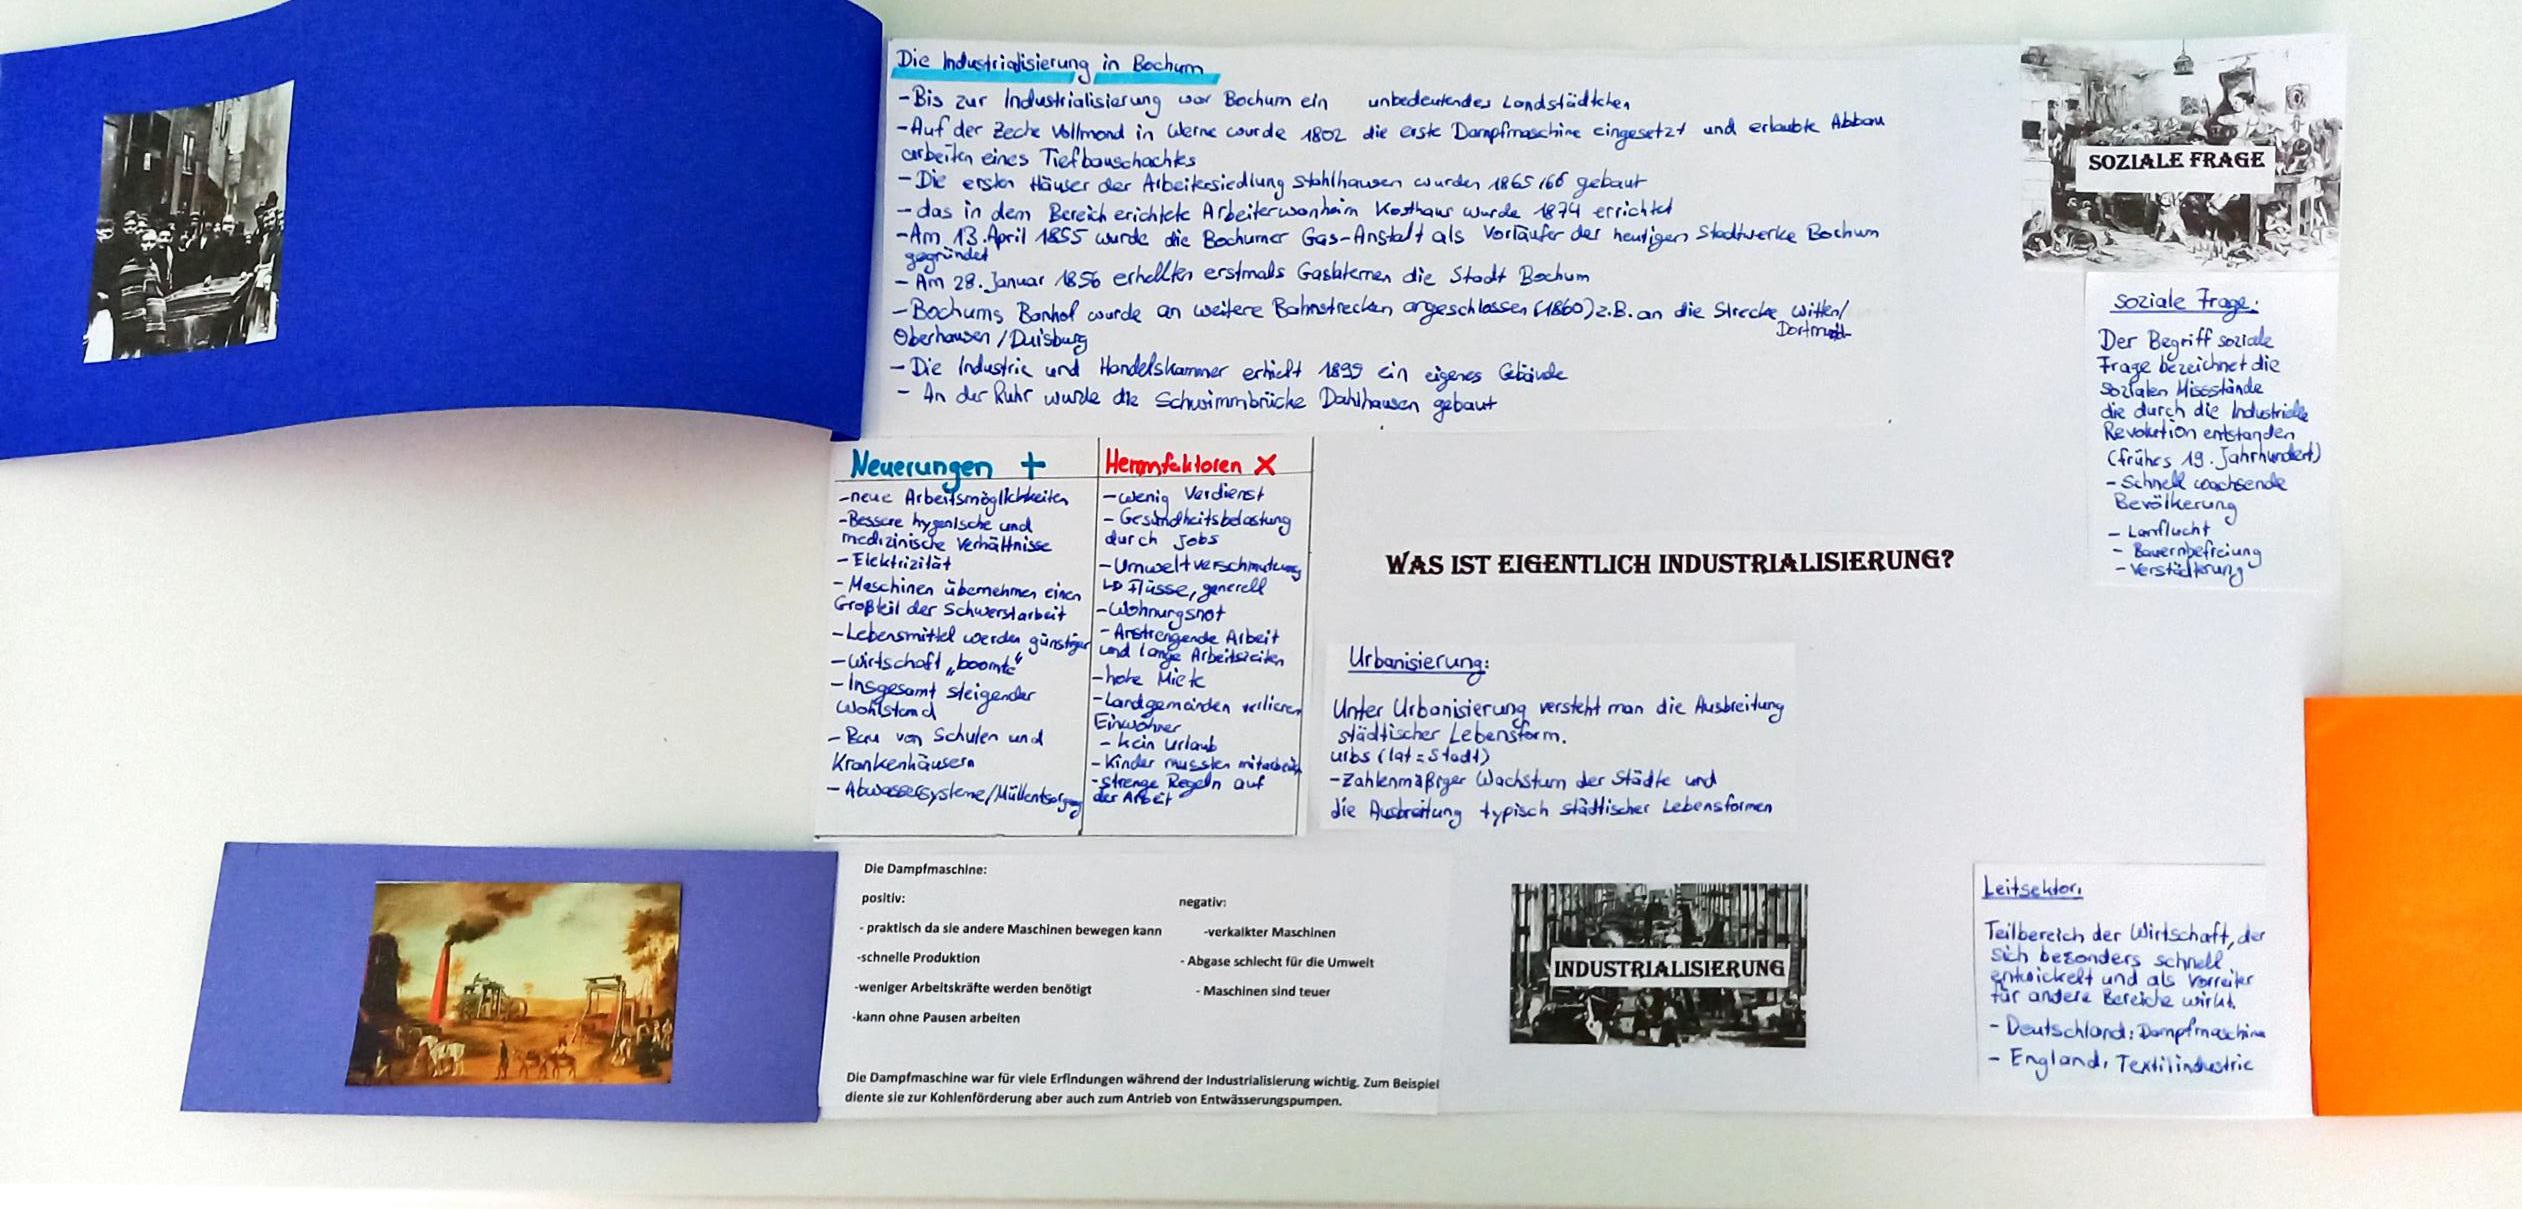 Die Industrialisierung in Bochum
- Bis zur Industrialisierung war Bochum ein unbedeutendes Landstädtchen
- Auf der Zeche Vollmond in Werne wurde 1802 die erste Dampfmaschine eingesetzt und erlaubte Abbau
arbeiten eines Tiefbauschachtes
- Die ersten Häuser der Arbeitersiedlung Stahlhausen wurden 1865/66 gebaut
- das in dem Bereich erichtete Arbeiterwonheim Kosthaus wurde 1874 errichtet
- Am 13. April 1855 wurde die Bochumer Gas-Anstalt als Vorläufer der heutigen Stadtwerke Bochum
gegründet
- Am 28. Januar 1856 erhellten erstmals Gaslaternen die Stadt Bochum
- Bochums Banhof wurde an weitere Bahnstrecken angeschlossen (1860) z.B. an die Strecke Witten/
Dortmund
Oberhausen / Duisburg
- Die Industrie und Handelskammer erhielt 1899 ein eigenes Gebäude
- An der Ruhr wurde die Schwimmbrücke Dahlhausen gebaut
SOZIALE FRAGE
soziale Frage:
Der Begriff soziale
Frage bezeichnet die
sozialen Missstände
die durch die Industrielle
Revolution entstanden
(frühes 19. Jahrhundert)
- Schnell wachsende
Bevölkerung
- Lanflucht
- Bauernbefreiung
- Verstädterung
Neuerungen +
- neue Arbeitsmöglichkeiten
- Bessere hygenische und
medizinische Verhältnisse
- Elektrizität
- Maschinen übernehmen einen
Großteil der Schwerstarbeit
- Lebensmittel werden günstiger
- Wirtschaft „boomte“
- Insgesamt steigender
Wohlstand
- Bau von Schulen und
Krankenhäusern
- Abwassersysteme/Müllentsorgung
Hemmfaktoren x
- wenig Verdienst
- Gesundheitsbelastung
durch Jobs
- Umweltverschmutzung
↳ Flüsse, generell
- Wohnungsnot
- Anstrengende Arbeit
und lange Arbeitszeiten
- hohe Miete
- Landgemeinden verlieren
Einwohner
- kein Urlaub
- Kinder mussten mitarbeiten
- strenge Regeln auf
der Arbeit
WAS IST EIGENTLICH INDUSTRIALISIERUNG?
Urbanisierung:
Unter Urbanisierung versteht man die Ausbreitung
städtischer Lebensform.
urbs (lat = Stadt)
- Zahlenmäßiger Wachstum der Städte und
die Ausbreitung typisch städtischer Lebensformen
Die Dampfmaschine:
positiv:
- praktisch da sie andere Maschinen bewegen kann
-schnelle Produktion
-weniger Arbeitskräfte werden benötigt
-kann ohne Pausen arbeiten
negativ:
-verkalkter Maschinen
- Abgase schlecht für die Umwelt
- Maschinen sind teuer
Die Dampfmaschine war für viele Erfindungen während der Industrialisierung wichtig. Zum Beispiel
diente sie zur Kohlenförderung aber auch zum Antrieb von Entwässerungspumpen.
INDUSTRIALISIERUNG
Leitsektor:
Teilbereich der Wirtschaft, der
sich besonders schnell
entwickelt und als Vorreiter
für andere Bereiche wirkt.
- Deutschland: Dampfmaschine
- England: Textilindustrie